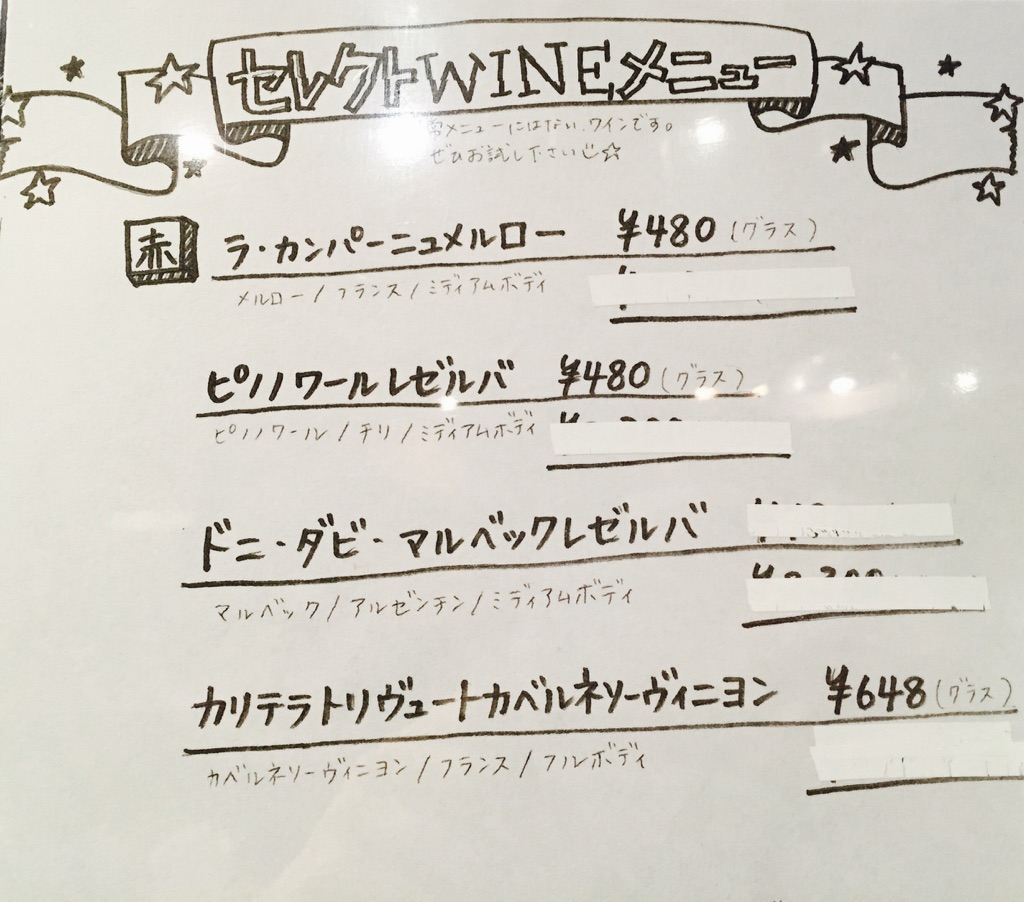 セレクトWINEメニュー
メニューにはない、ワインです。
ぜひお試し下さい
赤
ラ・カンパーニュメルロー ¥480(グラス)
メルロー/フランス/ミディアムボディ
ピノノワールレゼルバ ¥480(グラス)
ピノノワール/チリ/ミディアムボディ
ドニ・ダビ・マルベックレゼルバ
マルベック/アルゼンチン/ミディアムボディ
カリテラトリヴュートカベルネソーヴィニヨン ¥648(グラス)
カベルネソーヴィニヨン/フランス/フルボディ